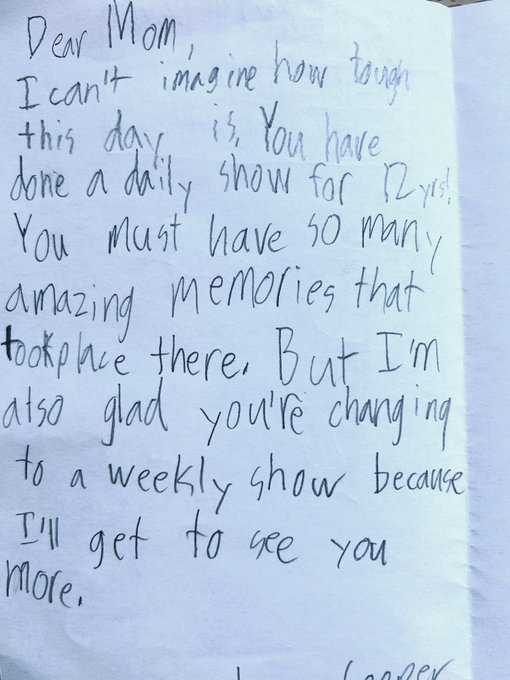 Dear Mom,
I can't imagine how tough
this day is. You have
done a daily show for 12 yrs!
You must have so many
amazing memories that
tookplace there. But I'm
also glad you're changing
to a weekly show because
I'll get to see you
more.
Cooper